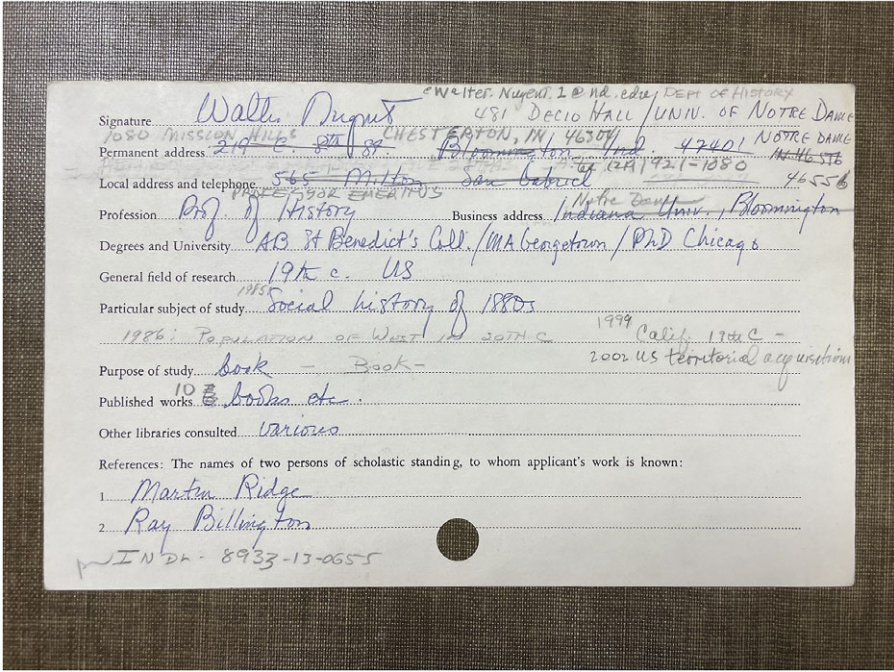 eWalter.Nugent.1@nd.edu DEPT OF HISTORY
Signature Walter Nugent 481 DECIO HALL / UNIV. OF NOTRE DAME
1080 MISSION HILLS CHESTERTON, IN 46304 NOTRE DAME
Permanent address 219 E. 8th St. Bloomington Ind. 47401 IN 46556
(219) 921-1080
Local address and telephone 565 Milton San Gabriel 46556
PROFESSOR EMERITUS Notre Dame
Profession Prof. of History Business address Indiana Univ., Bloomington
Degrees and University AB St Benedict's Coll. / MA Georgetown / PhD Chicago
General field of research 19th c. US
1985:
Particular subject of study Social history of 1880s
1986: POPULATION OF WEST IN 20TH C 1999 Calif. 19th C -
2002 US territorial acquisitions
Purpose of study book - Book -
Published works 10 books etc.
Other libraries consulted various
References: The names of two persons of scholastic standing, to whom applicant's work is known:
1 Martin Ridge
2 Ray Billington
INDL - 8933-13-0655